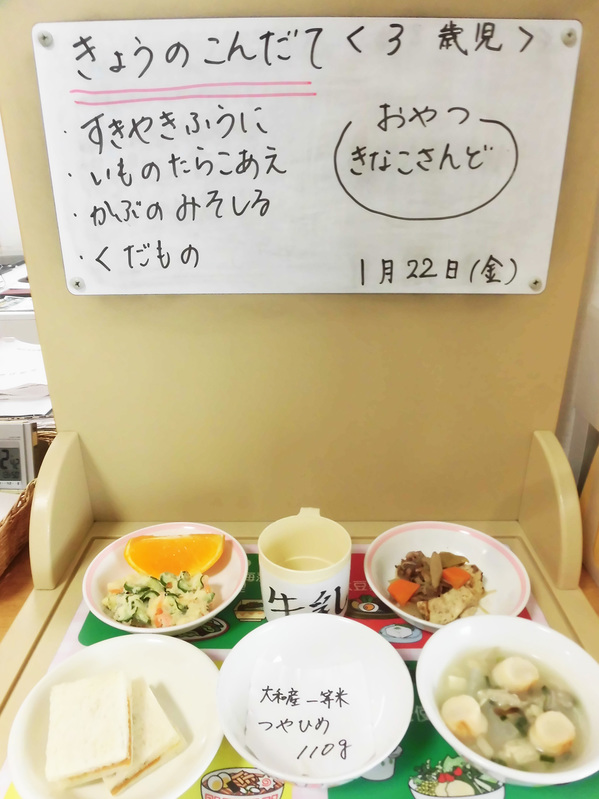 きょうのこんだて 〈3歳児〉
・すきやきふうに
・いものたらこあえ
・かぶのみそしる
・くだもの
おやつ
きなこさんど
1月22日(金)
牛乳
大和産一等米
つやひめ
110g